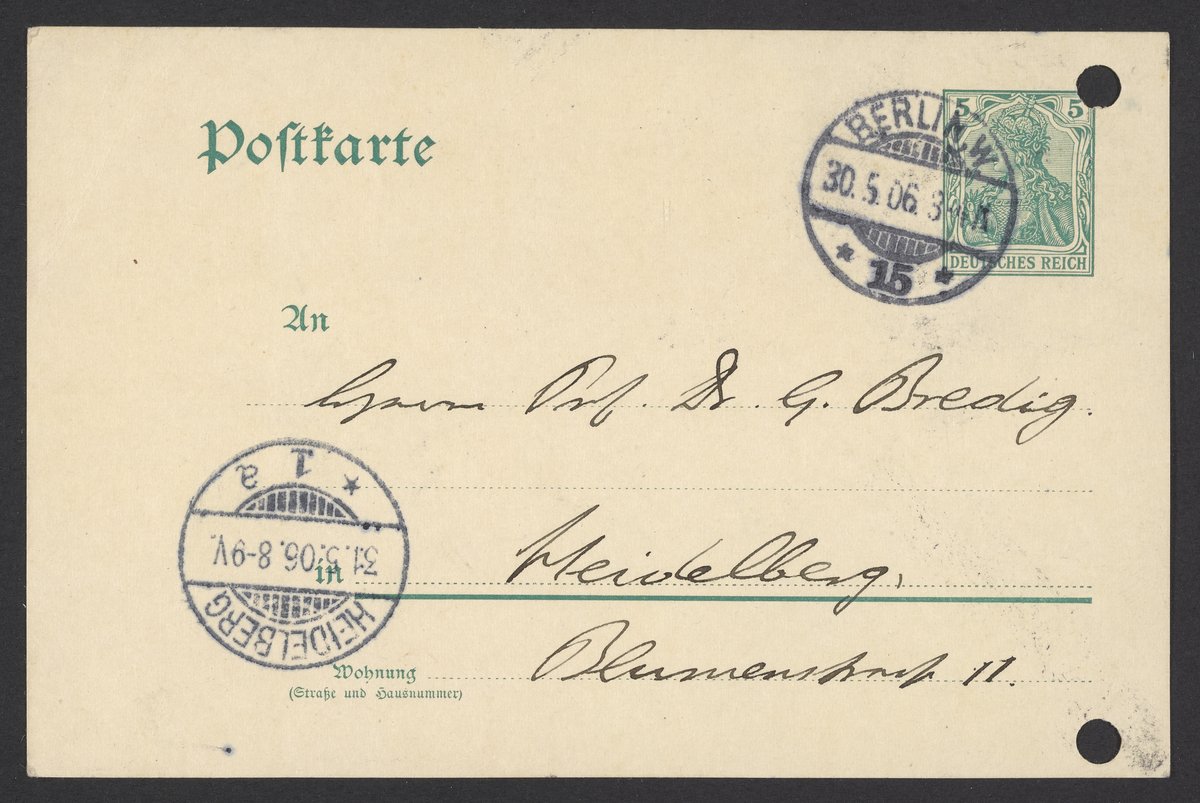 Postkarte
BERLIN.W.
30.5.06.
15
5 5
DEUTSCHES REICH
An
Herrn Prof. Dr. G. Bredig.
1 a
31.5.06.8-9V.
HEIDELBERG
in Heidelberg.
Wohnung Blumenstraße 11.
(Straße und Hausnummer)